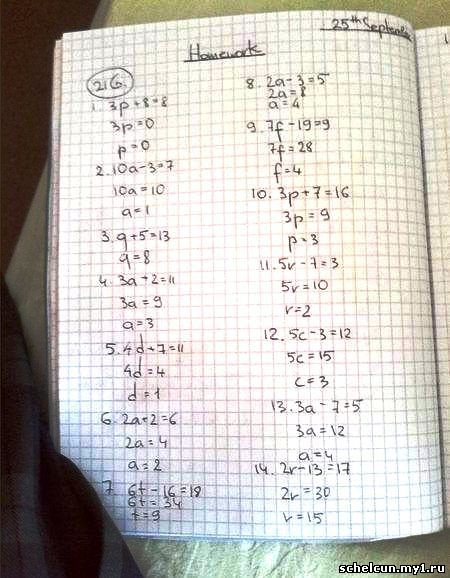 25th September
Homework
2G.
1. 3p+8=8
3p=0
p=0
2. 10a-3=7
10a=10
a=1
3. q+5=13
q=8
4. 3a+2=11
3a=9
a=3
5. 4d+7=11
4d=4
d=1
6. 2a+2=6
2a=4
a=2
7. 6t-16=18
6t=34
t=9
8. 2a-3=5
2a=8
a=4
9. 7f-19=9
7f=28
f=4
10. 3p+7=16
3p=9
p=3
11. 5r-7=3
5r=10
r=2
12. 5c-3=12
5c=15
c=3
13. 3a-7=5
3a=12
a=4
14. 2r-13=17
2r=30
r=15
schelcun.my1.ru